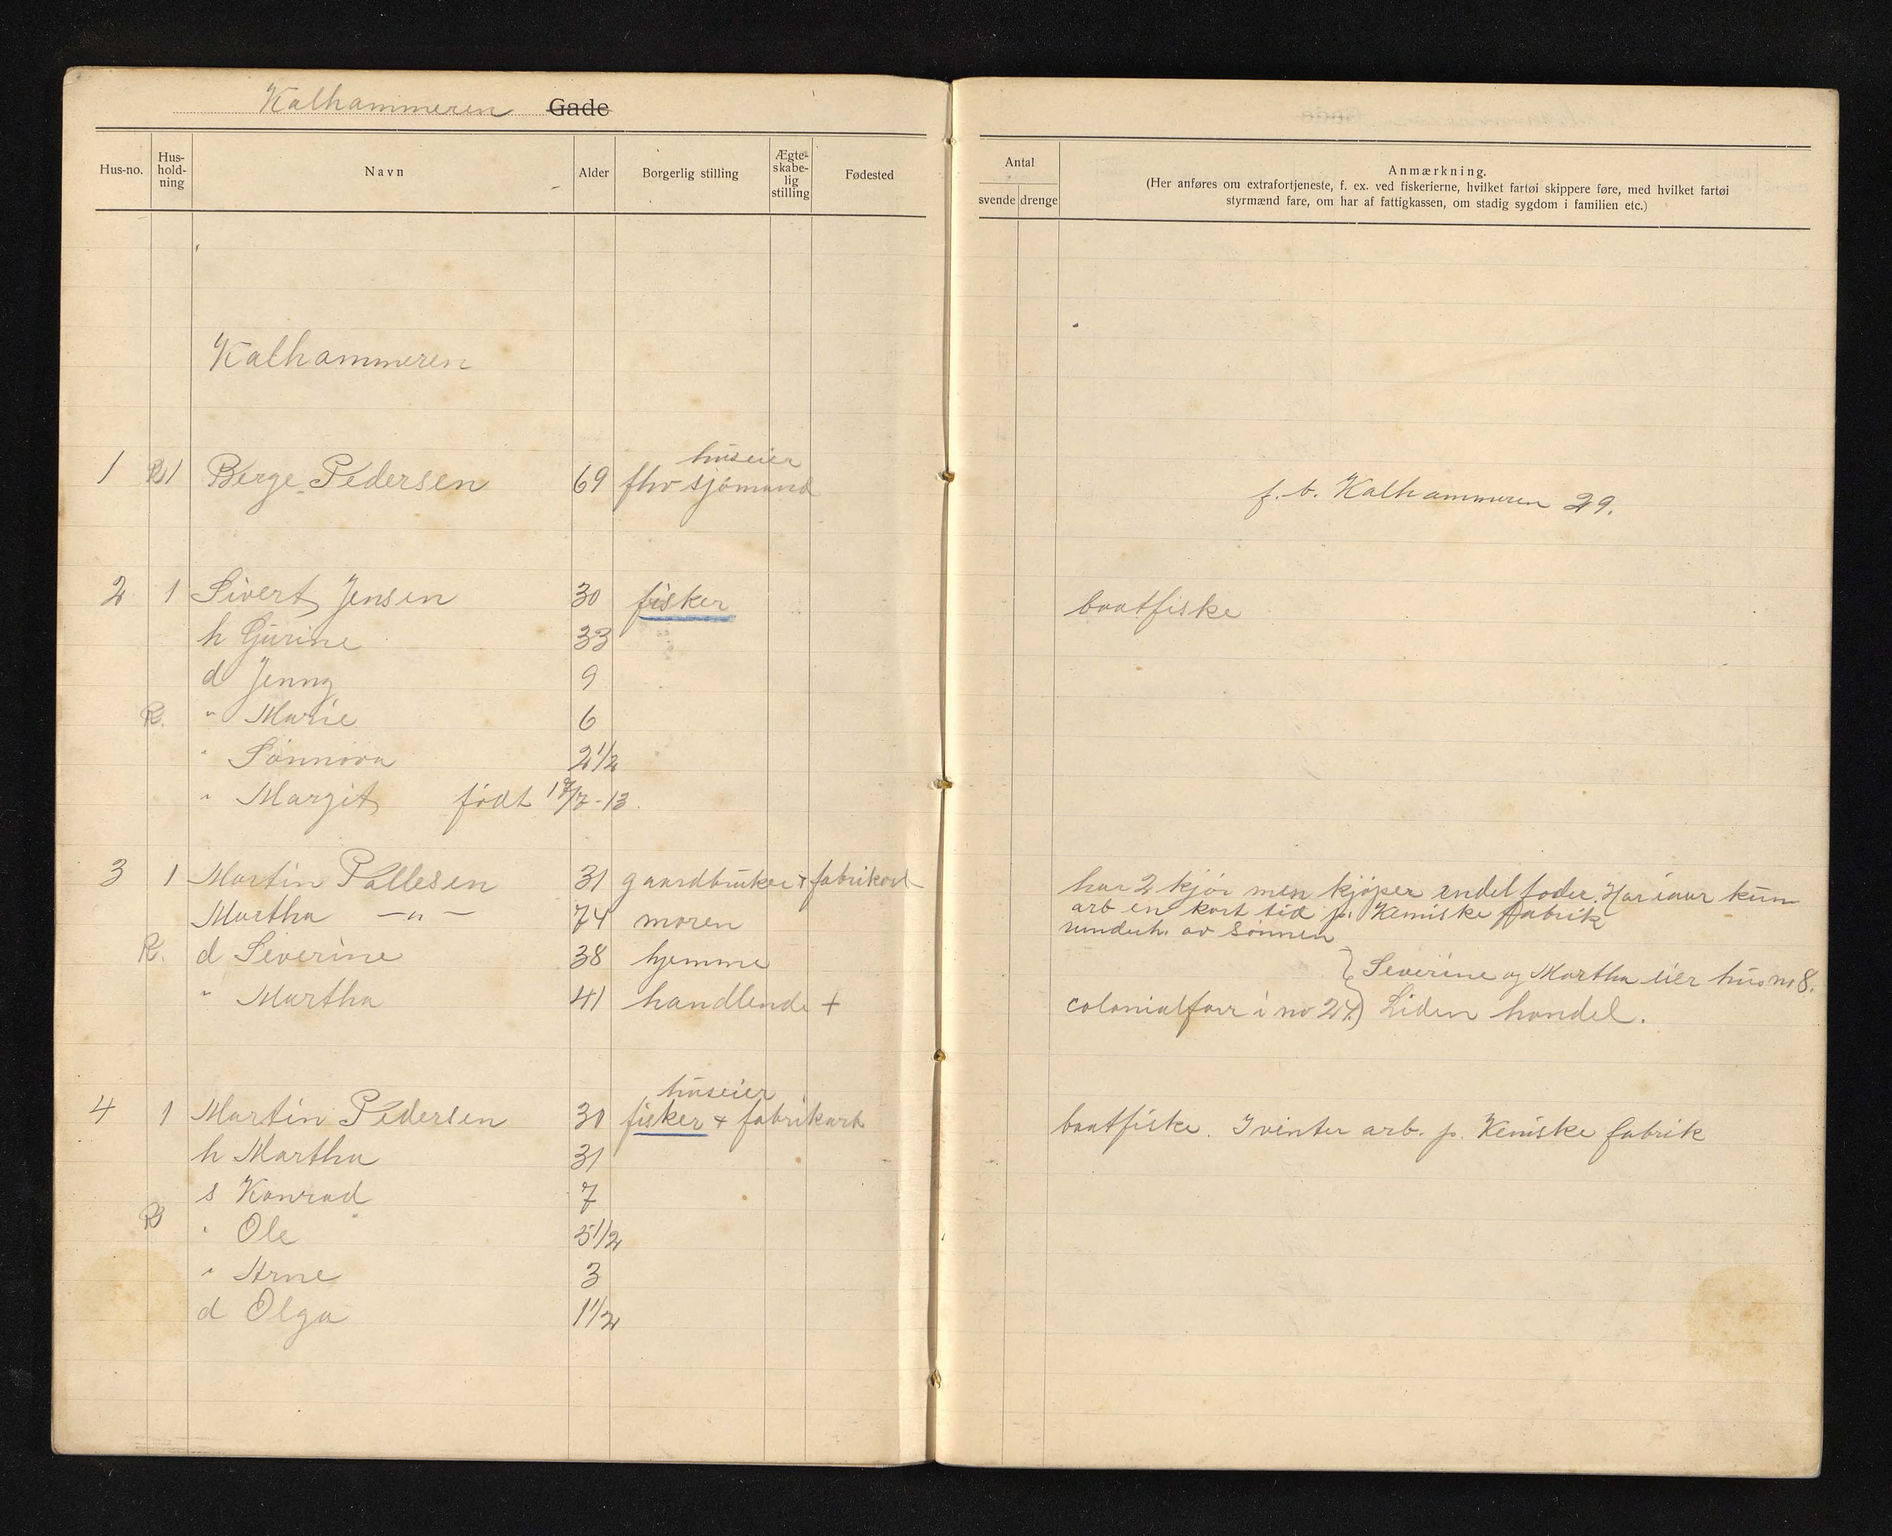 Kalhammeren Gade
Hus-no. Hus-hold-ning Navn Alder Borgerlig stilling Ægte-skabe-lig stilling Fødested
Antal svende drenge
Anmærkning.
(Her anføres om extrafortjeneste, f. ex. ved fiskerierne, hvilket fartøi skippere føre, med hvilket fartøi
styrmænd fare, om har af fattigkassen, om stadig sygdom i familien etc.)
Kalhammeren
huseier
1 R 1 Berge Pedersen 69 fhv sjömand f. b. Kalhammeren 29.
2 1 Sivert Jensen 30 fisker baatfiske
h Gurine 33
d Jenny 9
R. " Marie 6
" Sönnöva 2 1/2
" Margit født 17/7 - 13.
3 1 Martin Pallesen 31 gaardbruker + fabrikarb har 2 kjör men kjöper endel foder. Har iaar kun
arb en kort tid p. Kemiske fabrik
Martha —"— 74 moren underh. av sönnen
R. d Severine 38 hjemme } Severine og Martha eier hus no 8.
" Martha 41 handlende + colonialforr i no 24) Liden handel.
huseier
4 1 Martin Pedersen 30 fisker + fabrikarb baatfiske. I vinter arb. p. Kemiske fabrik
h Martha 31
s Konrad 7
R " Ole 5 1/2
" Arne 3
d Olga 1 1/2